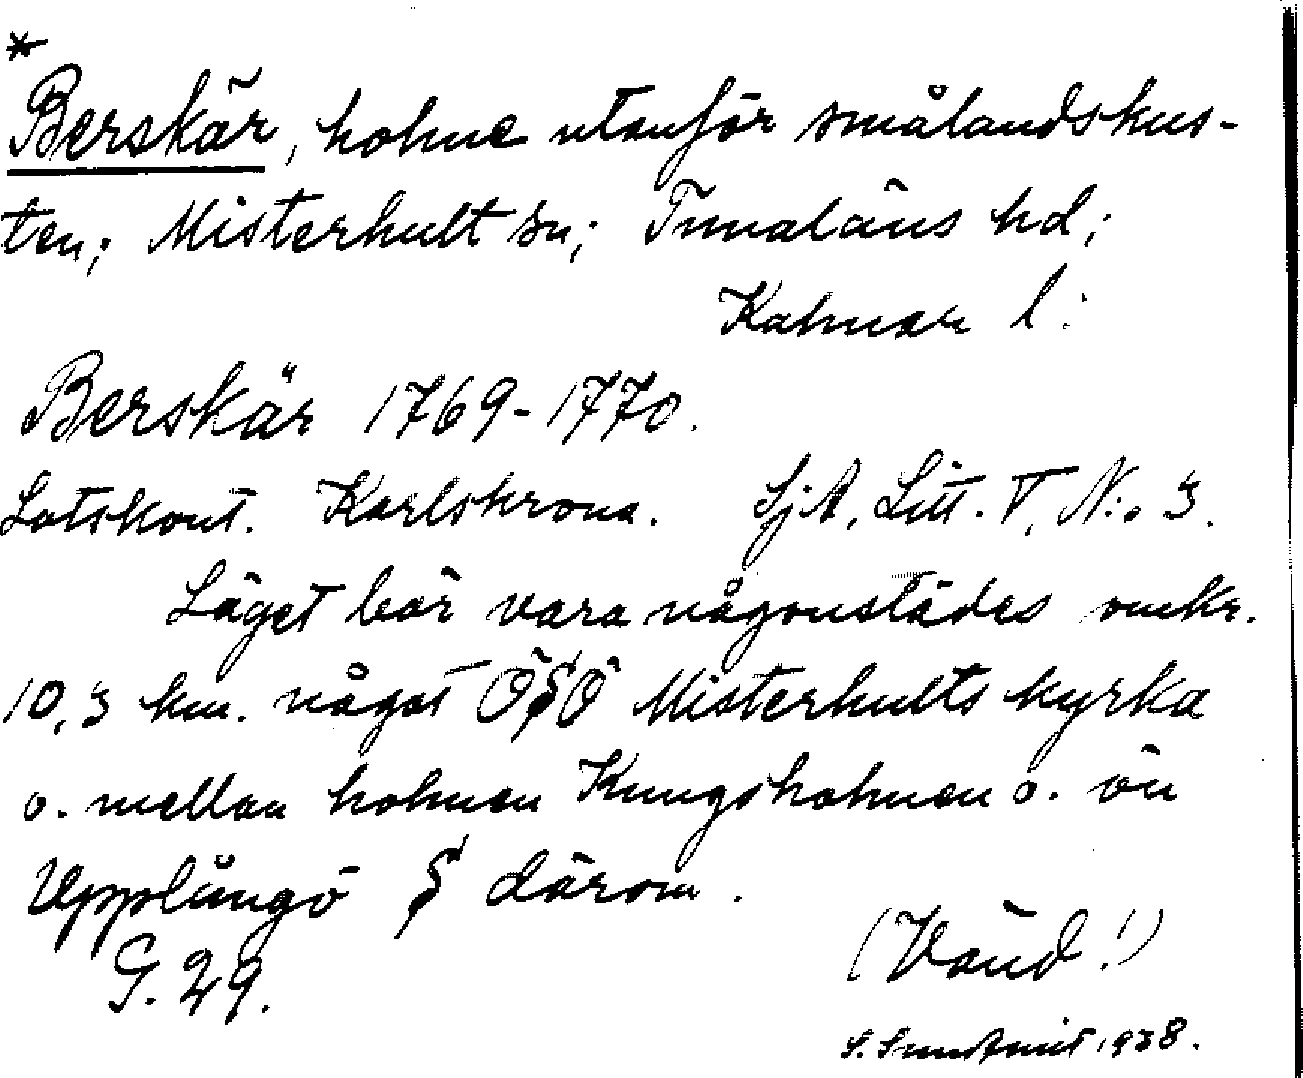 *
Berskär, holme utanför smålandskus-
ten; Misterhult sn; Tunaläns hd;
Kalmar l:
Berskär 1769-1770.
Lotskont. Karlskrona. SjA, Litt. T, N:o 3.
Läget bör vara någonstädes omkr.
10,3 km. något ÖSÖ Misterhults kyrka
o. mellan holmen Kungsholmen o. ön
Upplångö S därom.
G. 29.
(Vänd!)
S. 1938.